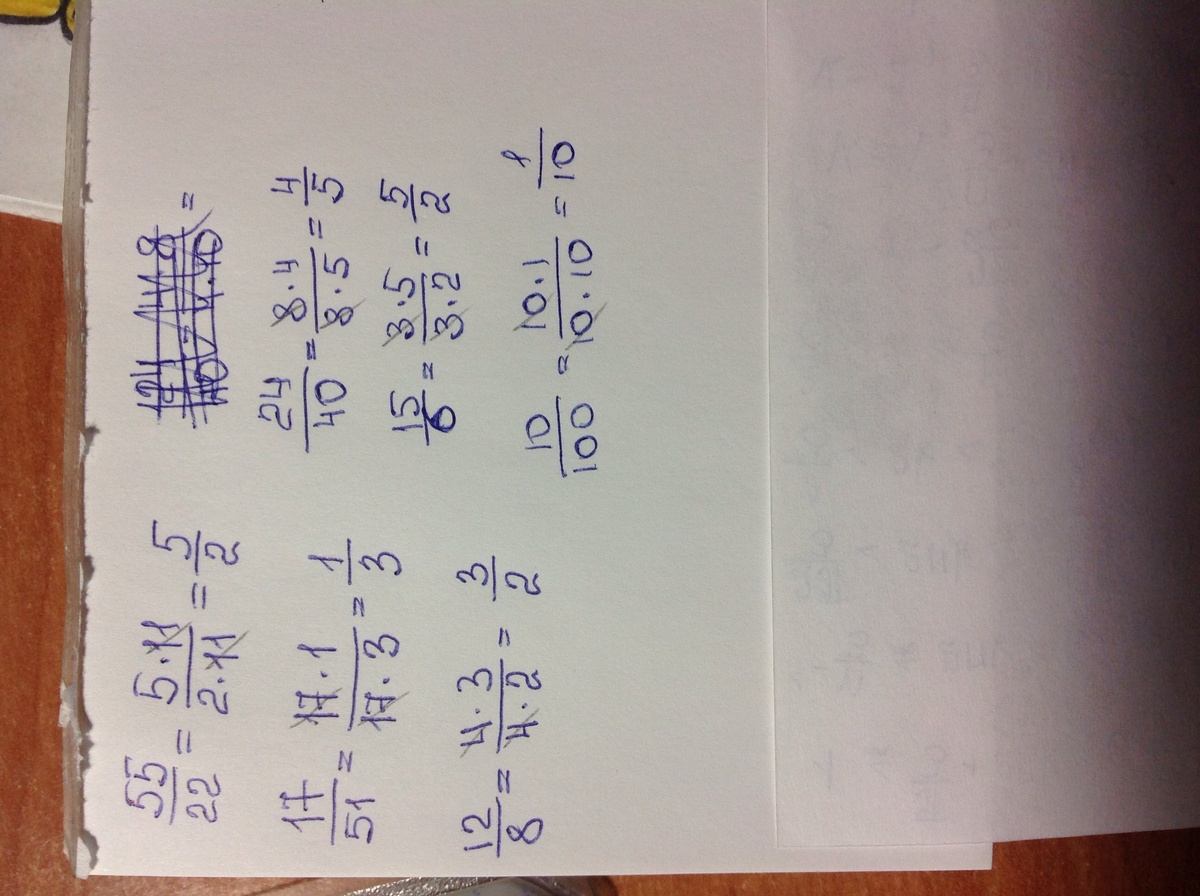 55/22 = 5·11/2·11 = 5/2
17/51 = 17·1/17·3 = 1/3
12/8 = 4·3/4·2 = 3/2
24/40 = 8·4/8·5 = 4/5
15/6 = 3·5/3·2 = 5/2
10/100 = 10·1/10·10 = 1/10